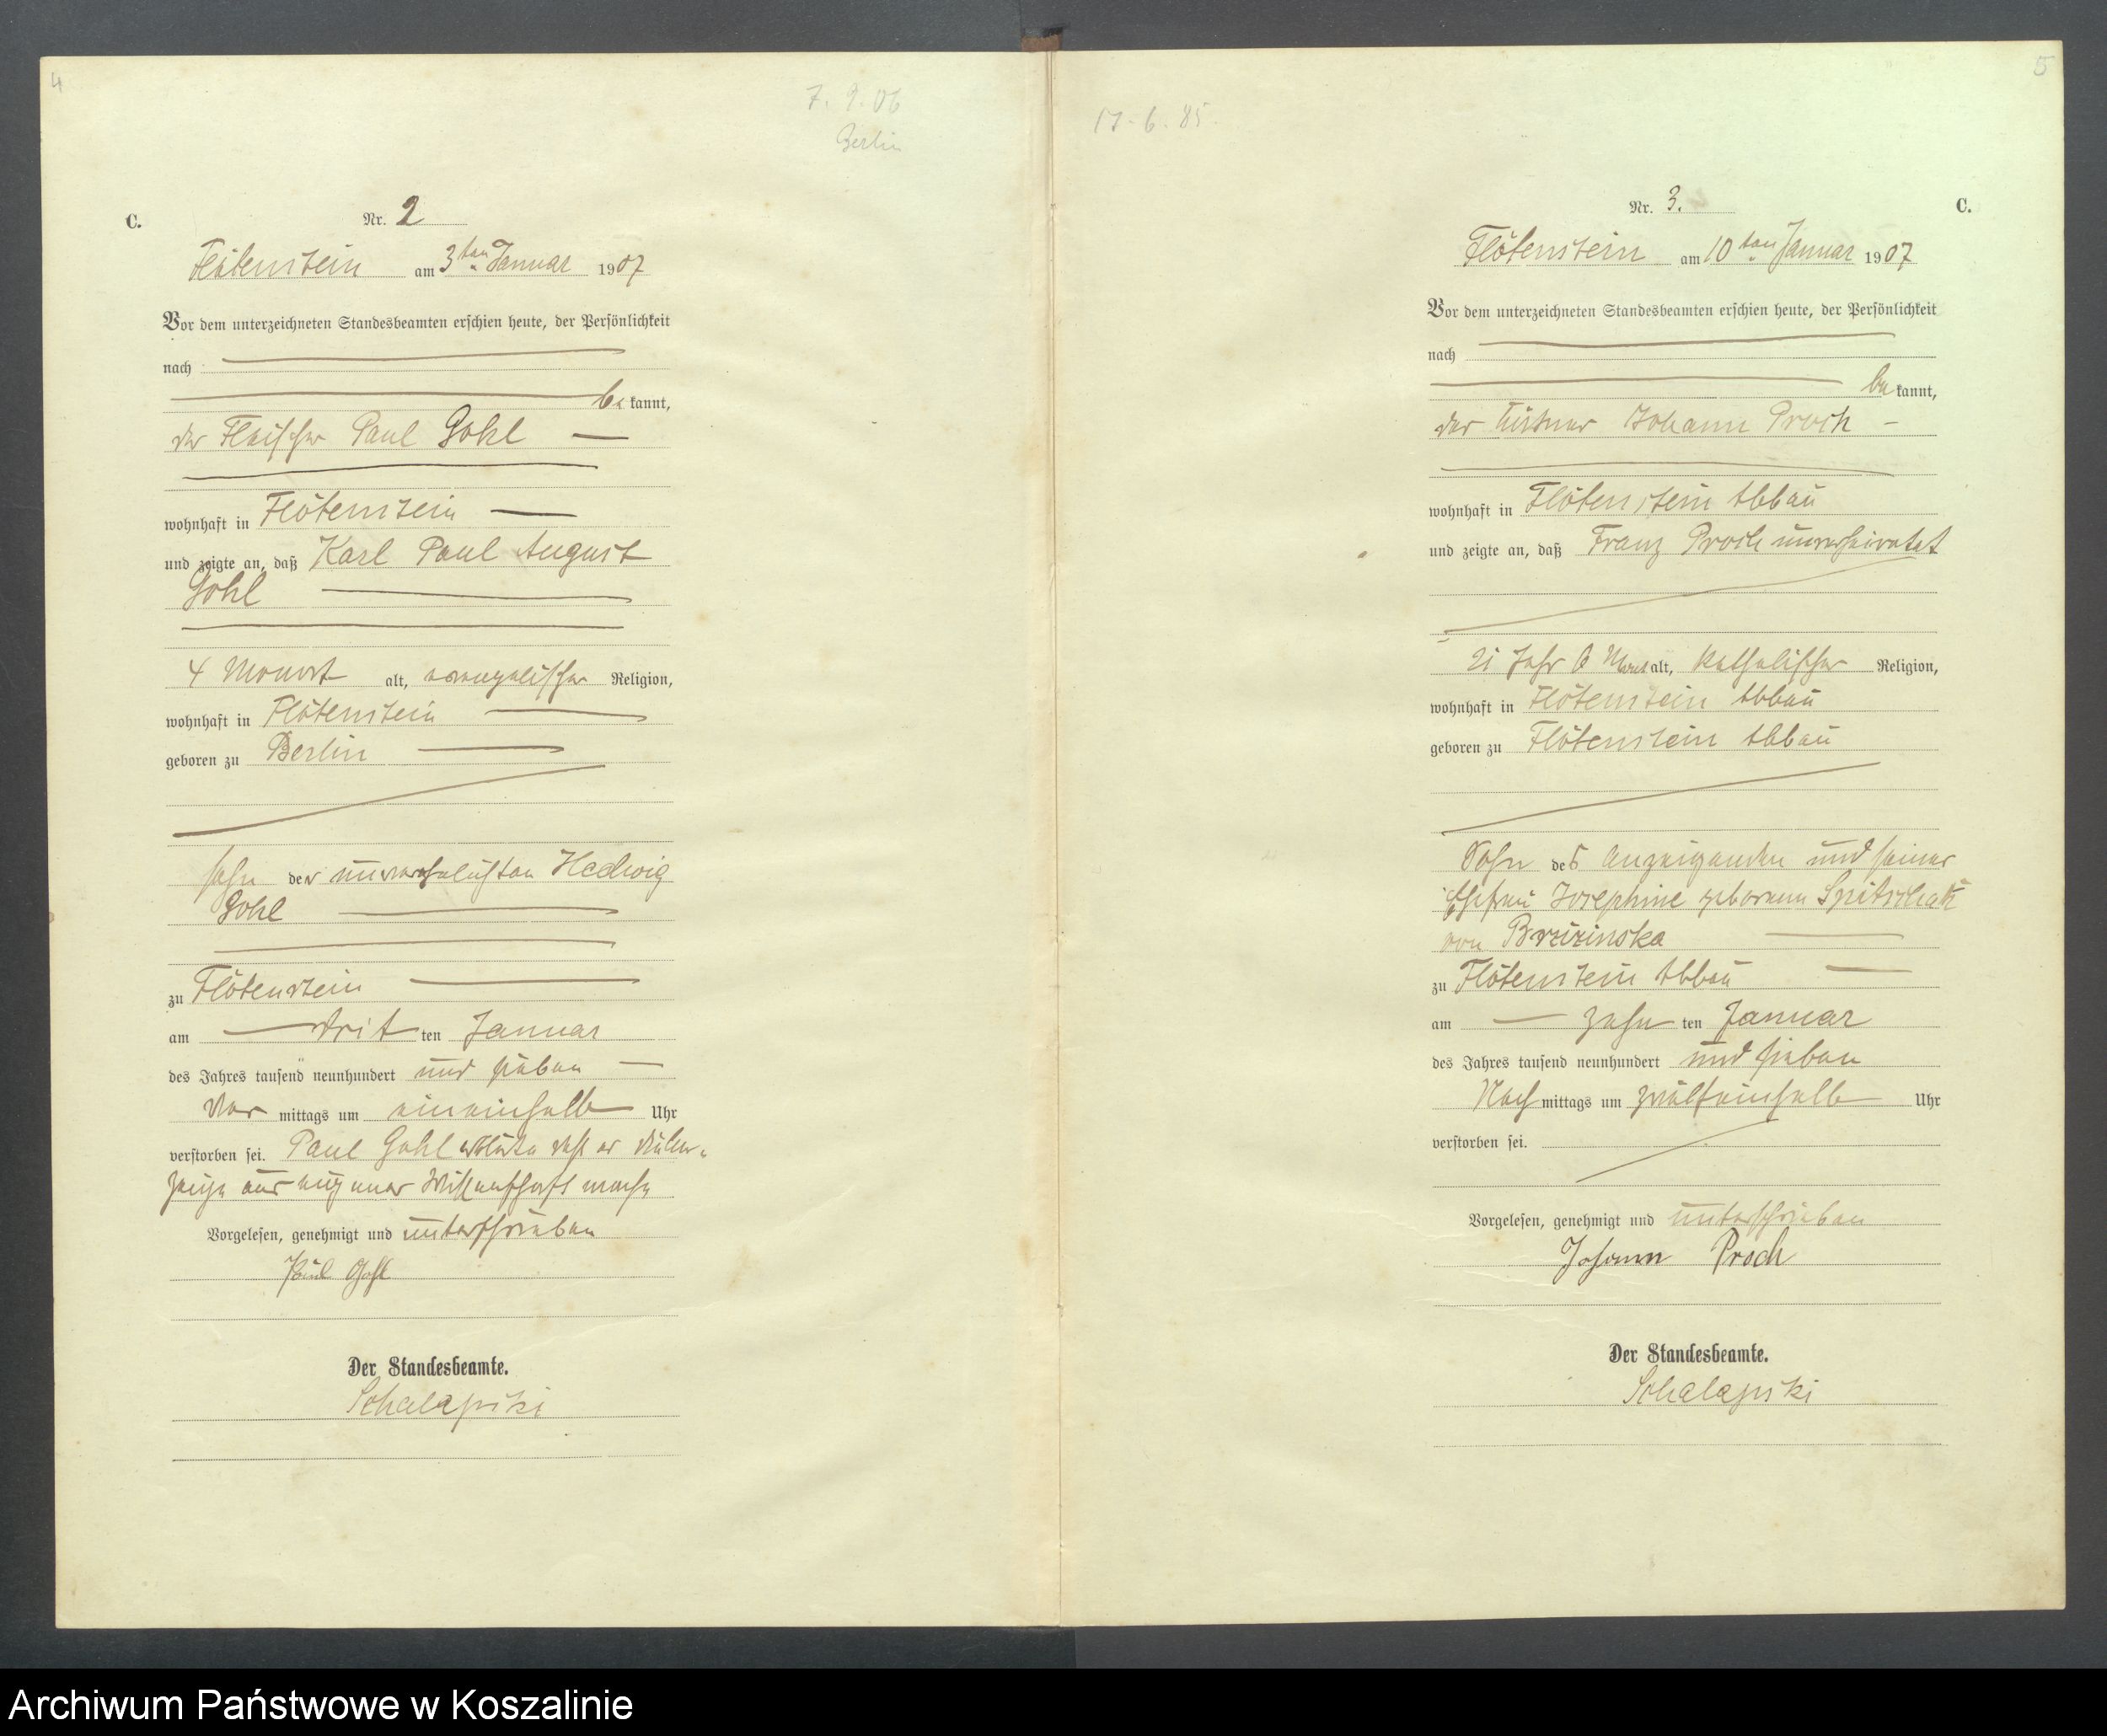 4
7. 9. 06
Berlin
C.
Nr. 2
Flötenstein am 3ten Januar 1907
Vor dem unterzeichneten Standesbeamten erschien heute, der Persönlichkeit
nach
bekannt,
der Fleischer Paul Gohl
wohnhaft in Flötenstein
und zeigte an, daß Karl Paul August
Gohl
4 Monat alt, evangelischer Religion,
wohnhaft in Flötenstein
geboren zu Berlin
Sohn der unverehelichten Hedwig
Gohl
zu Flötenstein
am dritten Januar
des Jahres tausend neunhundert und sieben
Vormittags um eineinhalb Uhr
verstorben sei. Paul Gohl erklärte daß er diese An-
zeige aus eigener Wissenschaft mache
Vorgelesen, genehmigt und unterschrieben
Paul Gohl
Der Standesbeamte.
Schalapski
5
17. 6. 85.
Nr. 3.
C.
Flötenstein am 10ten Januar 1907
Vor dem unterzeichneten Standesbeamten erschien heute, der Persönlichkeit
nach
bekannt,
der Johann Proch
wohnhaft in Flötenstein Abbau
und zeigte an, daß Franz Proch unverheiratet
21 Jahr 6 Monat alt, katholischer Religion,
wohnhaft in Flötenstein Abbau
geboren zu Flötenstein Abbau
Sohn des Anzeigenden und seiner
Ehefrau Josephine geborenen Spitschak
von Brzizinska
zu Flötenstein Abbau
am zehnten Januar
des Jahres tausend neunhundert und sieben
Nachmittags um zwölfeinhalb Uhr
verstorben sei.
Vorgelesen, genehmigt und unterschrieben
Johann Proch
Der Standesbeamte.
Schalapski
Archiwum Państwowe w Koszalinie